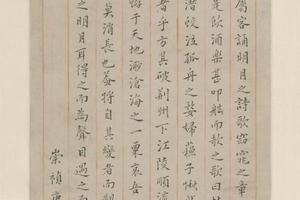 屬客誦明月之詩歌窈窕之章
是飲酒樂甚叩舷而歌之歌曰
潛蛟泣孤舟之嫠婦蘇子愀
者乎方其破荊州下江陵順流
于天地渺滄海之一粟哀吾
莫消長也蓋將自其變者而觀
之明月耳得之而為聲目遇之而
崇禎庚